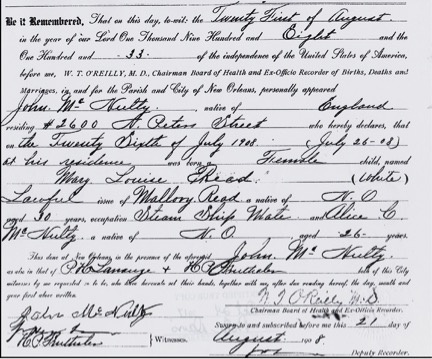 Be it Remembered, That on this day, to-wit: the Twenty First of August
in the year of our Lord One Thousand Nine Hundred and Eight and the
One Hundred and 33 of the independence of the United States of America,
before me, W. T. O'REILLY, M. D., Chairman Board of Health and Ex-Officio Recorder of Births, Deaths and
Marriages, in and for the Parish and City of New Orleans, personally appeared
John McNulty, native of England
residing #2600 St Peters Street who hereby declares, that
on the Twenty Sixth of July 1908 (July 26-08)
at his residence was born a Female child, named
Mary Louise Read (White)
Lawful issue of Mallory Read a native of N.O
aged 30 years, occupation Steam Ship Mate and Alice C
McNulty a native of N.O aged 26 years.
Thus done at New Orleans, in the presence of the aforesaid John McNulty
as also in that of P. H. Lanauze & H. P. both of this City
witnesses by me requested so to be, who have hereunto set their hands, together with me, after due reading hereof, the day, month and
year first above written.
John McNulty
W T O'Reilly M.D
Chairman Board of Health and Ex-Officio Recorder.
Sworn to and subscribed before me this 21 day of
H P Witnesses.
August 1908
Deputy Recorder.